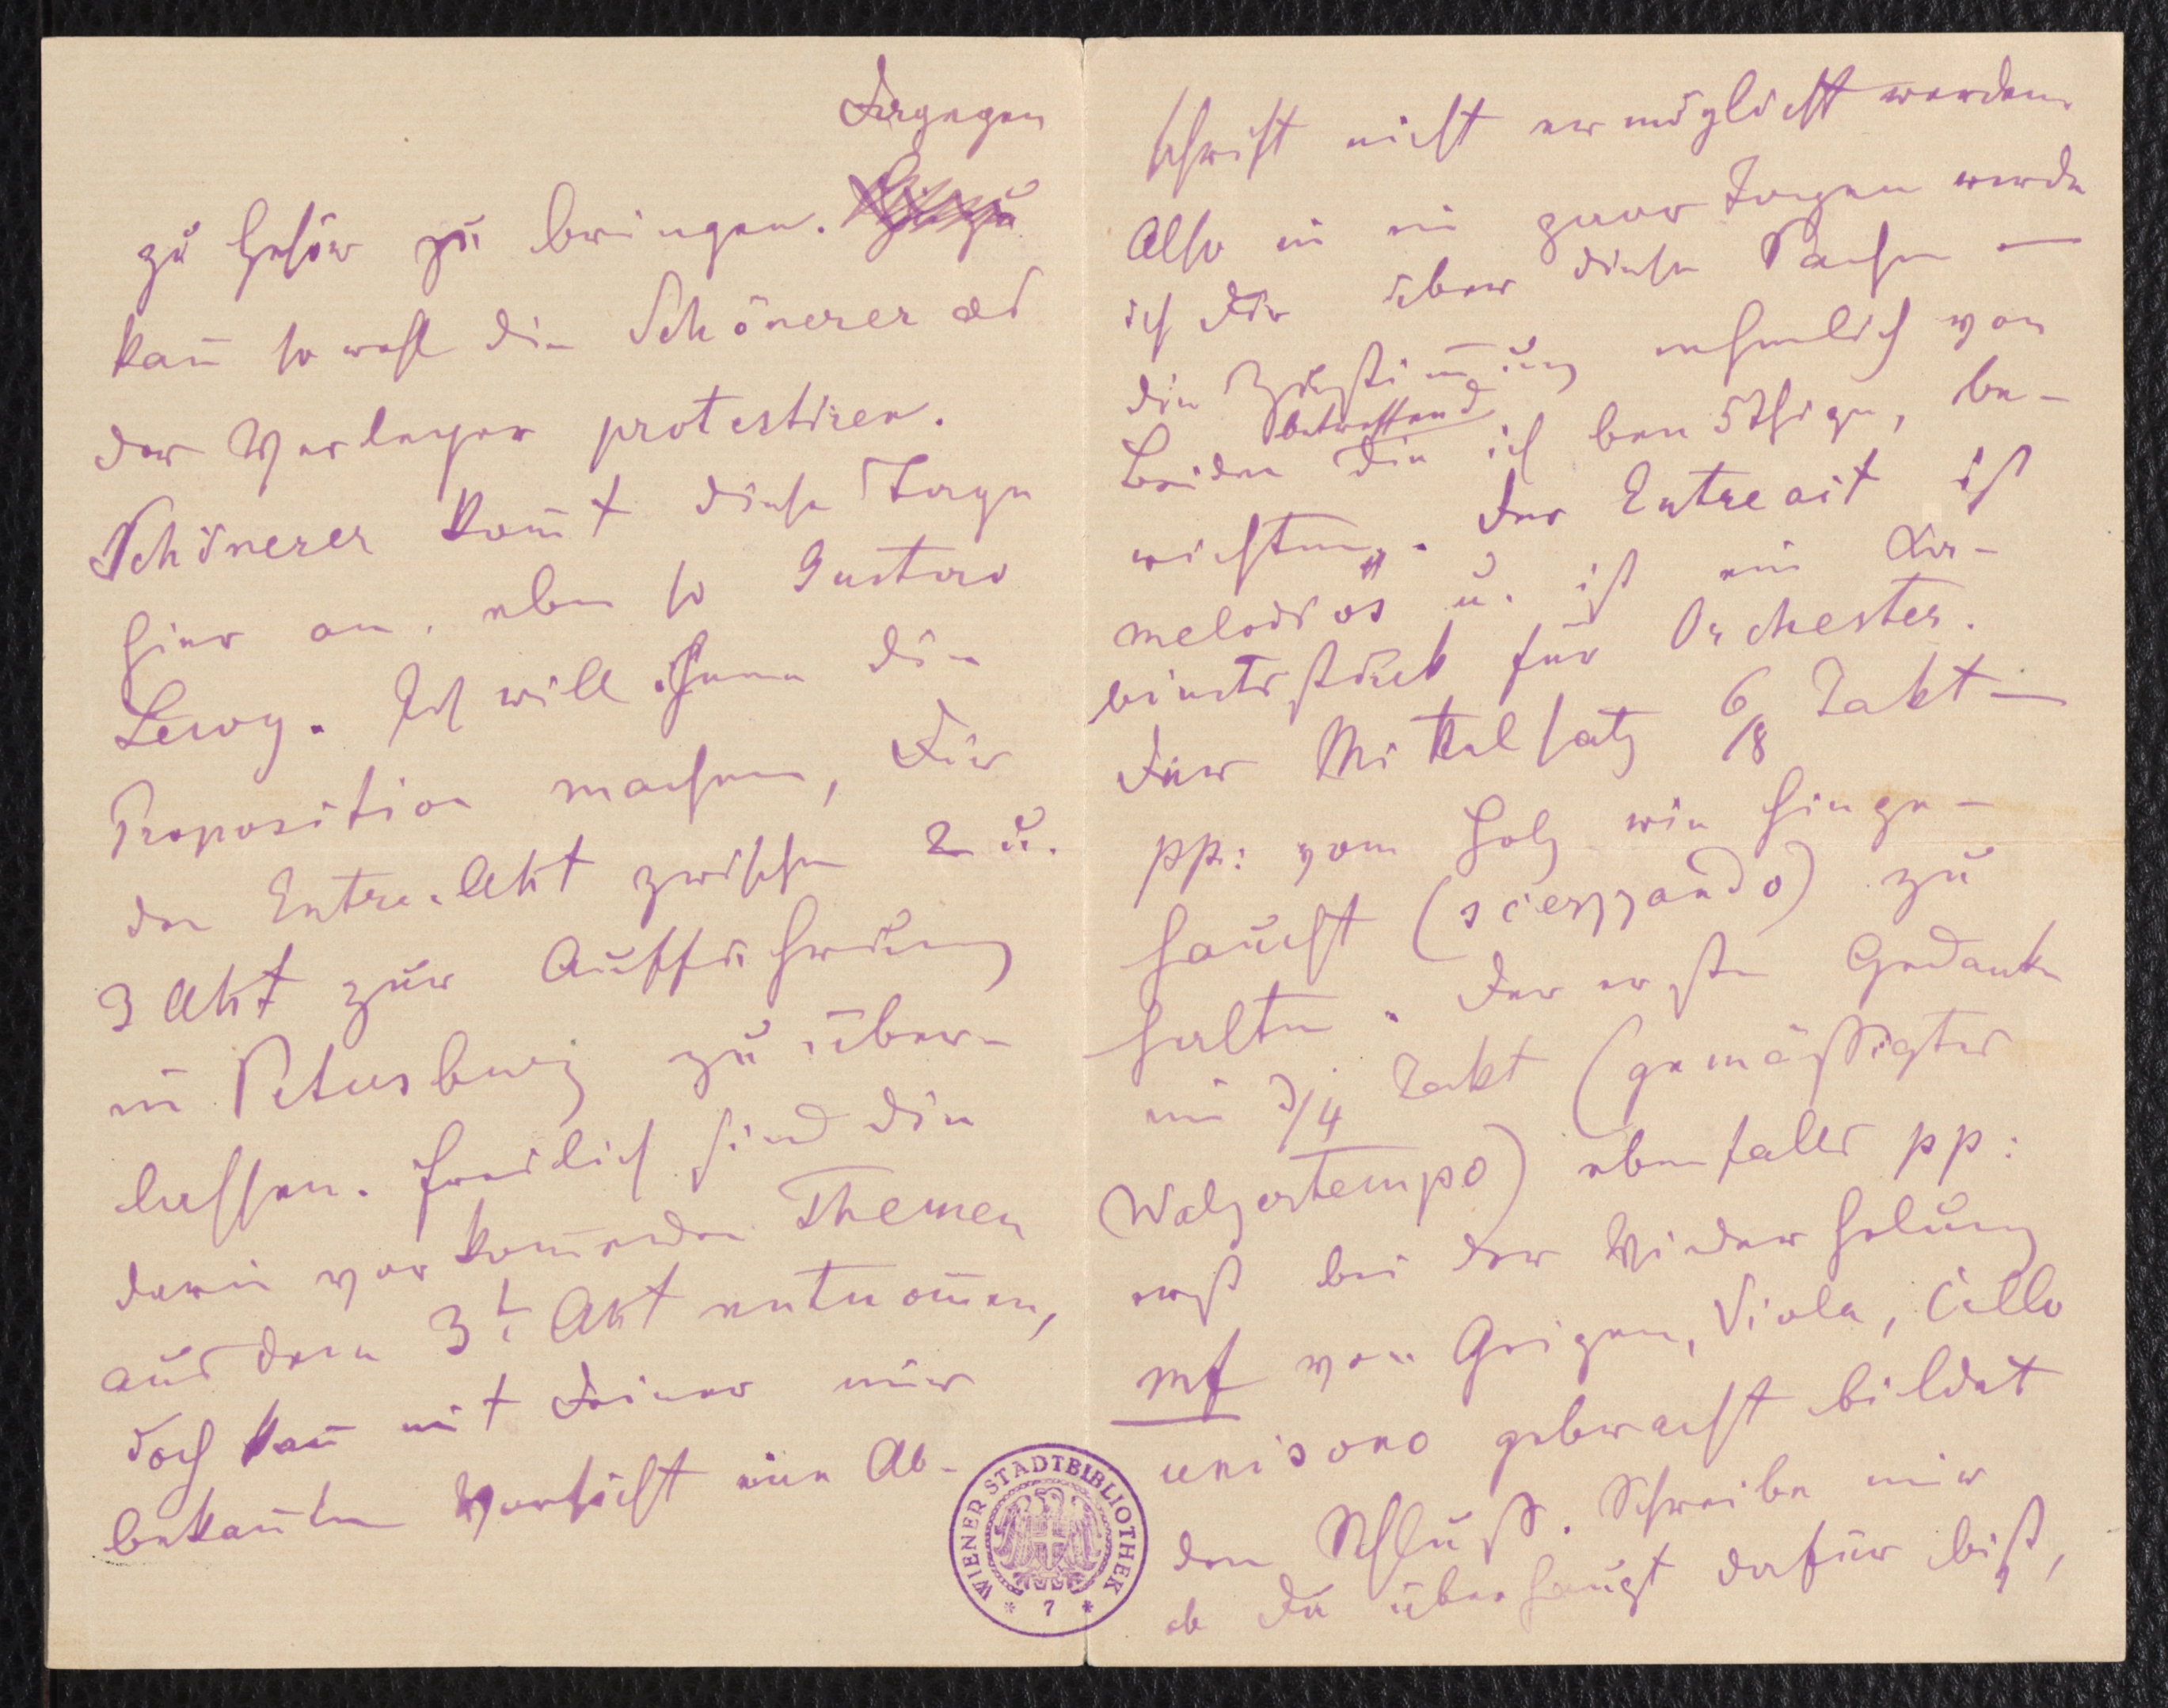 Dagegen
zu Gehör zu bringen.
kan̄ sowohl die Schönerer als
der Verleger protestiren.
Schönerer kom̄t diese Tage
hier an, eben so Gustav
Lewy. Ich will ihnen die
Proposition machen, Dir
den Entre-Akt zwischen 2 u.
3 Akt zur Aufführung
in Petersburg zu über-
lassen. Freilich sind die
darin vorkom̄enden Themen
aus dem 3t. Akt entnom̄en,
doch kan̄ mit Deiner mir
bekan̄ten Vorsicht eine Ab-
schrift nicht ermöglicht werden.
Also in ein paar Tagen werde
ich Dir über diese Sachen —
die Zustim̄ung nehmlich von
Beiden die ich benöthige, be-
betreffend
richten. Der Entreact ist
melodiös u. ist ein Ka-
binetsstück für Orchester.
Der Mittelsatz 6/8 Takt —
pp: vom Holz wie hinge-
haucht (scerzzando) zu
halten. Der erste Gedanke
im 3/4 Takt (gemäßigtes
Walzertempo) ebenfalls pp:
erst bei der Wiederholung
mf von Geigen, Viola, Cello
unisono gebracht bildet
den Schluß. Schreibe mir
ob Du überhaupt dafür bist,
WIENER STADTBIBLIOTHEK
* 7 *